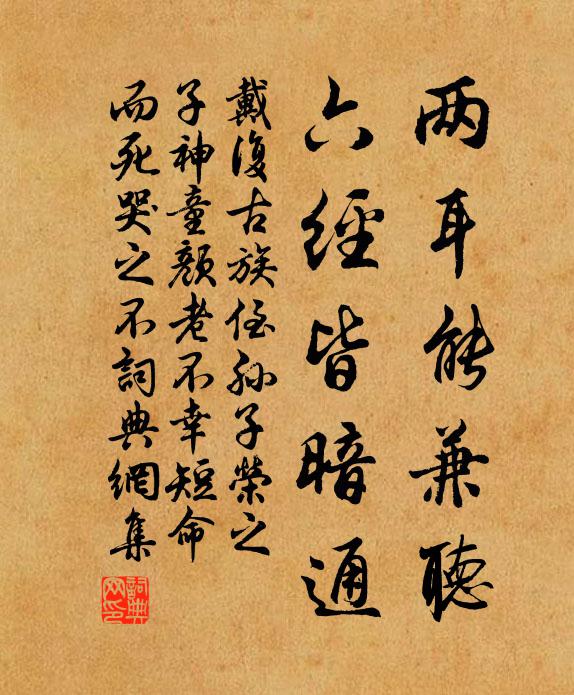 两耳能兼聽
六經皆暗通
戴復古族侄孙子榮之
子神童顏老不幸短命
而死哭之不詞典網集
詞典网印